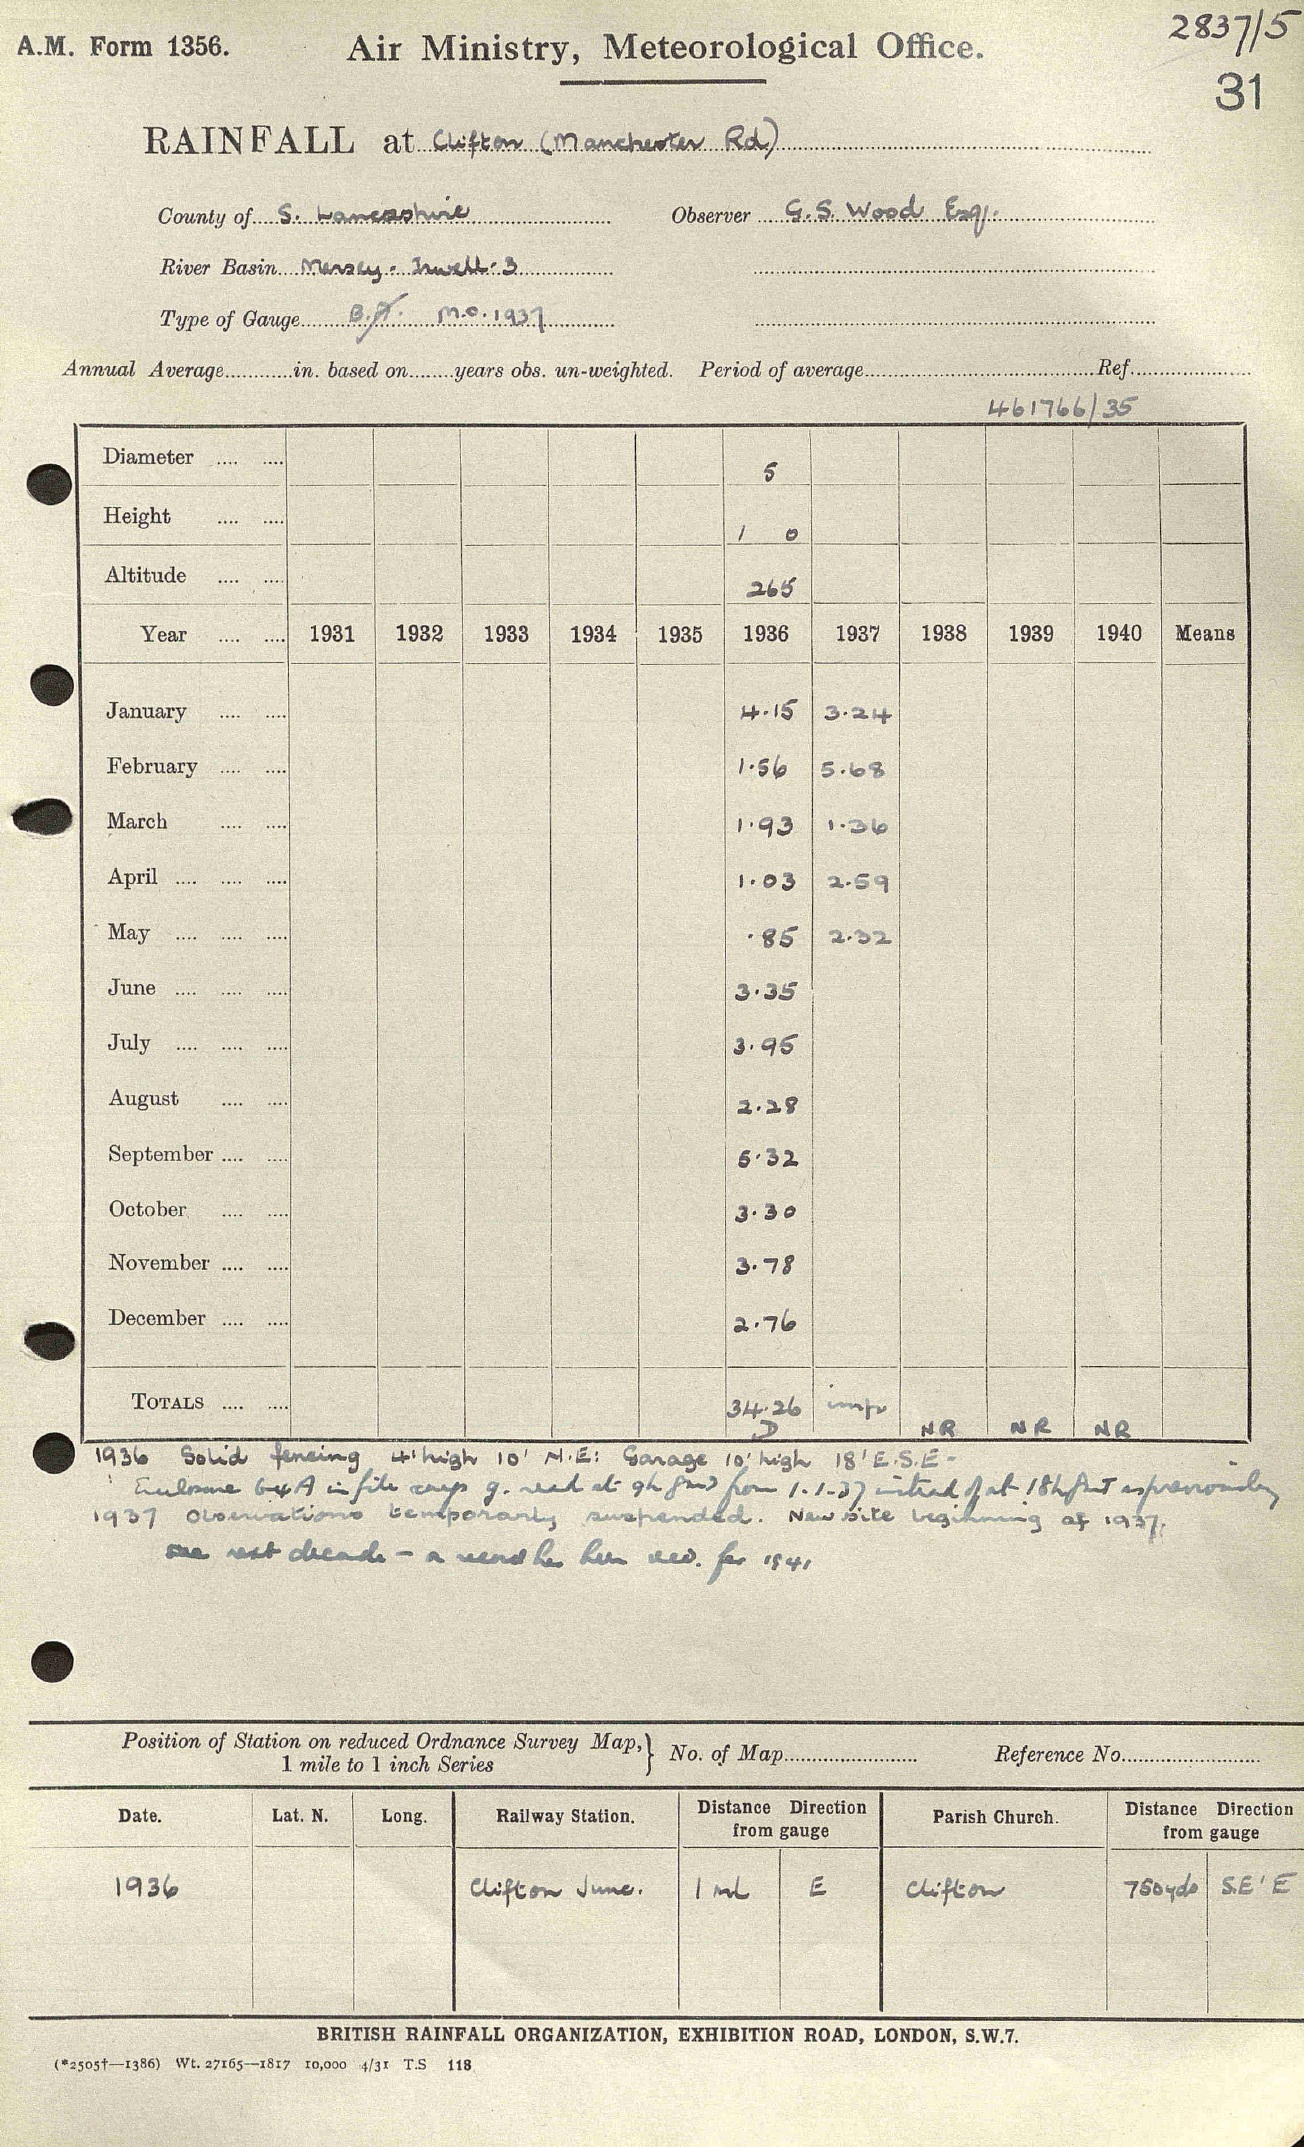 2837/5
A.M. Form 1356. Air Ministry, Meteorological Office.
31
RAINFALL at Clifton (Manchester Rd)
County of S. Lancashire Observer G.S. Wood Esq.
River Basin Mersey - Irwell - 3
Type of Gauge B.A. M.O. 1937
Annual Average in. based on years obs. un-weighted. Period of average Ref.
461766/35
Diameter 5
Height 1 0
Altitude 265
Year 1931 1932 1933 1934 1935 1936 1937 1938 1939 1940 Means
January 4.15 3.24
February 1.56 5.68
March 1.93 1.36
April 1.03 2.59
May .85 2.32
June 3.35
July 3.95
August 2.28
September 5.32
October 3.30
November 3.78
December 2.76
TOTALS 34.26 imp
D NR NR NR
1936 Solid fencing 4' high 10' N.E: Garage 10' high 18' E.S.E -
Enclosure in file g. read at 9h from 1.1.37 instead of at 18h as previously
1937 Observations temporarily suspended. New site beginning of 1937.
see next decade - a record has been recd. for 1941
Position of Station on reduced Ordnance Survey Map, 1 mile to 1 inch Series } No. of Map Reference No.
Date. Lat. N. Long. Railway Station. Distance Direction from gauge Parish Church. Distance Direction from gauge
1936 Clifton Junc. 1 ml E Clifton 750 yds S.E'E
BRITISH RAINFALL ORGANIZATION, EXHIBITION ROAD, LONDON, S.W.7.
(*2505†—1386) Wt. 27165—1817 10,000 4/31 T.S 118